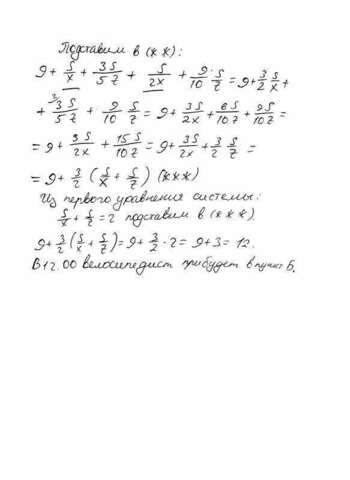 Подставим в (**):
9 + S/x + 3S/5z + S/2x + 9/10 · S/z = 9 + 3/2 S/x +
+ 3S/5z + 9/10 S/z = 9 + 3S/2x + 6S/10z + 9S/10z =
= 9 + 3S/2x + 15S/10z = 9 + 3S/2x + 3/2 S/z =
= 9 + 3/2 (S/x + S/z) (***)
Из первого уравнения системы:
S/x + S/z = 2 подставим в (***).
9 + 3/2 (S/x + S/z) = 9 + 3/2 · 2 = 9 + 3 = 12.
В 12.00 велосипедист прибудет в пункт Б.